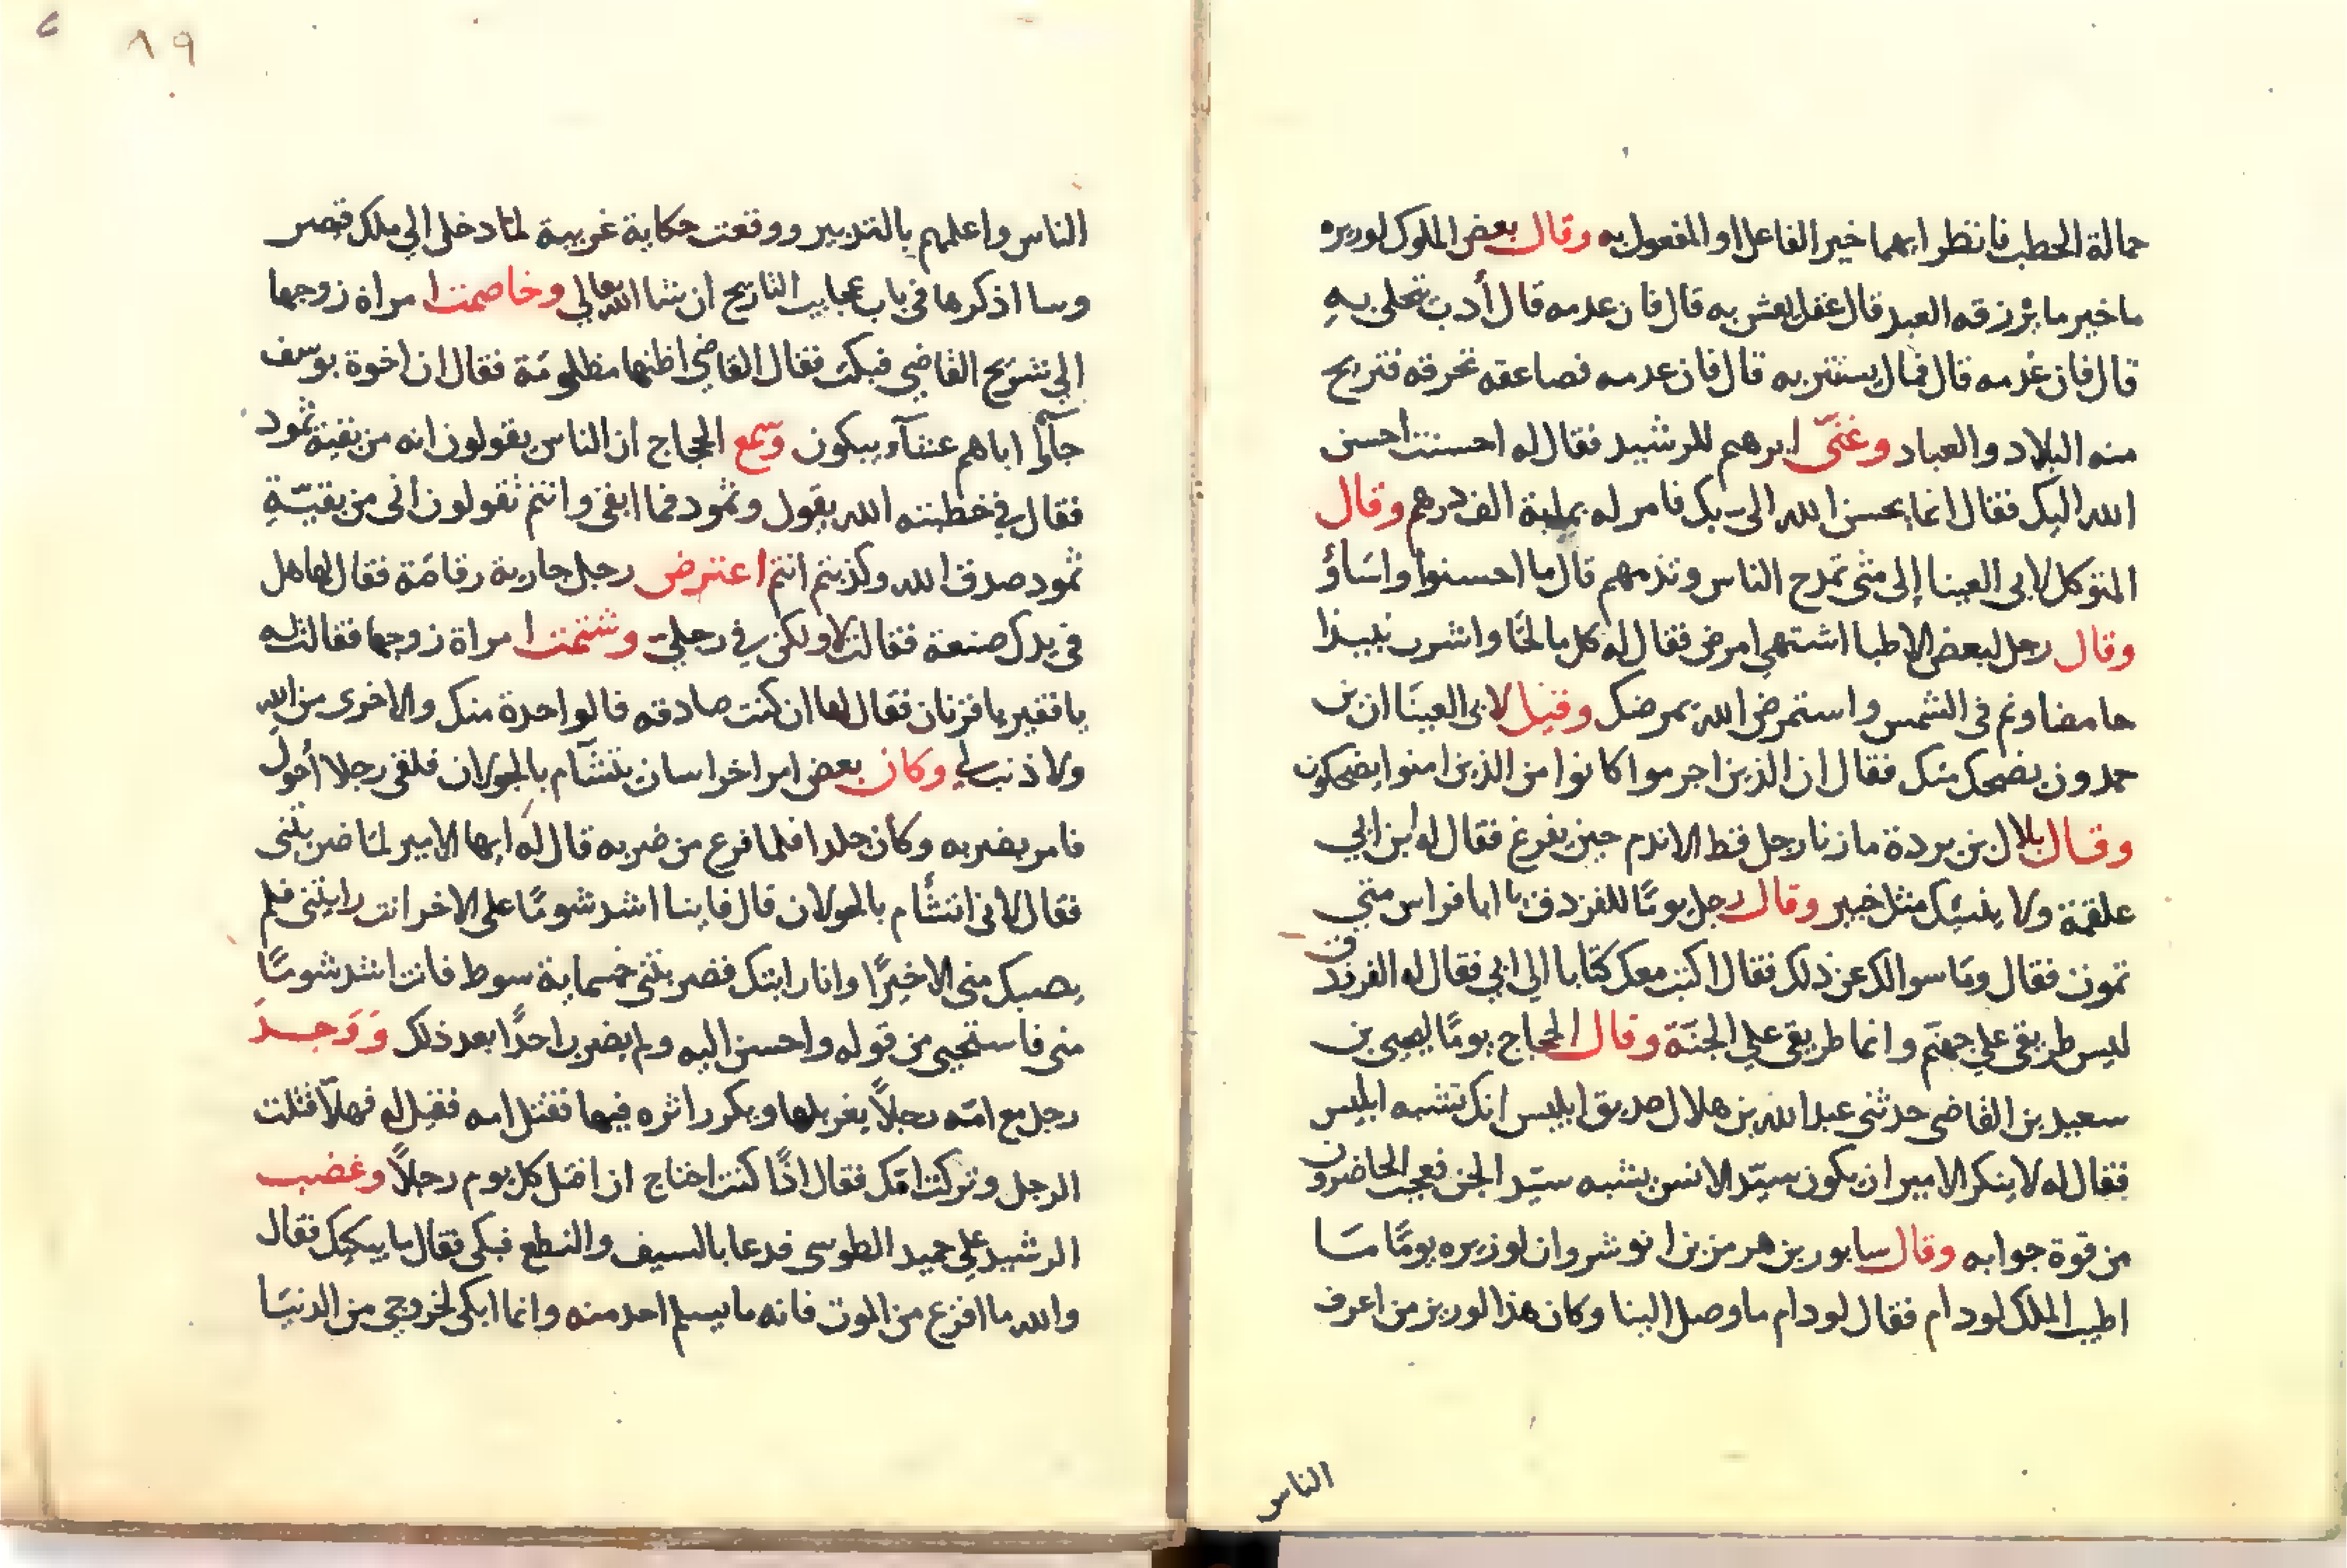 حمالة الحطب فانظر ايهما خير الفاعل او المفعول به وقال بعض الملوك لوزيره
ما خير ما يُرزقه العبد قال عقل يعش به قال فان عدمه قال أدب تحلى بهِ
قال فان عُدمه قال فمال يستتر به قال فان عدمه فصاعقه تحرقه فتريح
منه البلاد والعباد وغنّى ابرهيم للرشيد فقال له احسنت احسن
الله اليك فقال انما يحسن الله الى بك فامر له بماية الف درهم وقال
المتوكل لابى العينا إلى متى تمدح الناس وتذمهم قال ما احسنوا واسَاؤ
وقال رجل لبعض الاطبا اشتهى امرض فقال له كل مالحًا واشرب نبيذا
حامضا ونم فى الشمس واستمرض الله يمرضك وقيل لابى العينَا ان بن
حمدون يضحك منك فقال ان الذين اجرموا كانوا من الذين امنوا يضحكون
وقال بلال بن بردة ما زنا رجل قط الا ندم حين يفرغ فقال له ابن ابي
علقمة ولا ينبيك مثل خبير وقال رجل يومًا للفرزدق يا ابا فراس متي
تموت فقال ومَا سوالك عن ذلك فقال اكتب معك كتابا الي ابي فقال له الفرزدق
ليس طريقى علي جهنم وانما طريقى علي الجنّة وقال الحجاج يومًا ليحيى بن
سعيد بن القاضى حدثنى عبد الله بن هلال صديق ابليس انك تشبه ابليس
فقال له لا ينكر الامير ان يكون سيّد الانس يشبه سيّد الجن فعجب الحاضرون
من قوة جوابه وقال سابور بن هرمز بن انوشروان لوزيره يومًا مَا
اطيب الملك لو دام فقال لو دام ما وصل الينا وكان هذا الوزيز من اعرف
الناس
٨٩
الناس واعلمهم بالتدبير ووقعت حكاية غريبة لما دخل الي ملك قيصر
وسا اذكرها فى باب عجايب التاريخ ان شا الله تعالي وخاصمت امراة زوجها
الي شريح القاضي فبكت فقال القاضي اظنها مظلومَة فقال ان اخوة يوسف
جآوا اباهم عشآء يبكون وسمع الحجاج ان الناس يقولون انه من بقية ثمود
فقال في خطبته الله يقول وثمود فما ابقى وانتم تقولون انى من بقيّةِ
ثمود صدق الله وكذبتم انتم اعترض رجل جارية رقاصَة فقال لها هل
فى يدك صنعة فقالت لا ولكن في رجليّ وشتمت امراة زوجها فقالت له
يا فقير يا قرنان فقال لها ان كنت صادقه فالواحدة منك والاخرى من اللهِ
ولا ذنب لي وكان بعض امرا خراسان يتشآم بالحولان فلقى رجلا أحول
فامر بضربه وكأن جلدا فلما فرع من ضربه قال له ايها الامير لما ضربتنى
فقال لانى اتشأم بالحولان قال فاينا اشد شومًا على الاخر انت رايتنى فلم
يصبك منى الا خيرًا وانا رايتك فضربتنى خمسماية سوط فانت اشد شومًا
منى فاستحيى من قوله واحسن اليه ولم يضرب احدًا بعد ذلك وَوَجَدَ
رجل مع امّه رجلاً يغربلها ويكرر اثره فيها فقتل امه فقيل له فهلّا قتلت
الرجل وتركت امّك فقال اذًا كنت احتاج ان اقتل كل يوم رجلاً وغضب
الرشيد علي حميد الطوسى فدعا بالسيف والنطع فبكى فقال ما يبكيك فقال
والله ما افزع من الموت فانه ما يسلم احد منه وانما ابكى لخروجي من الدنيَا